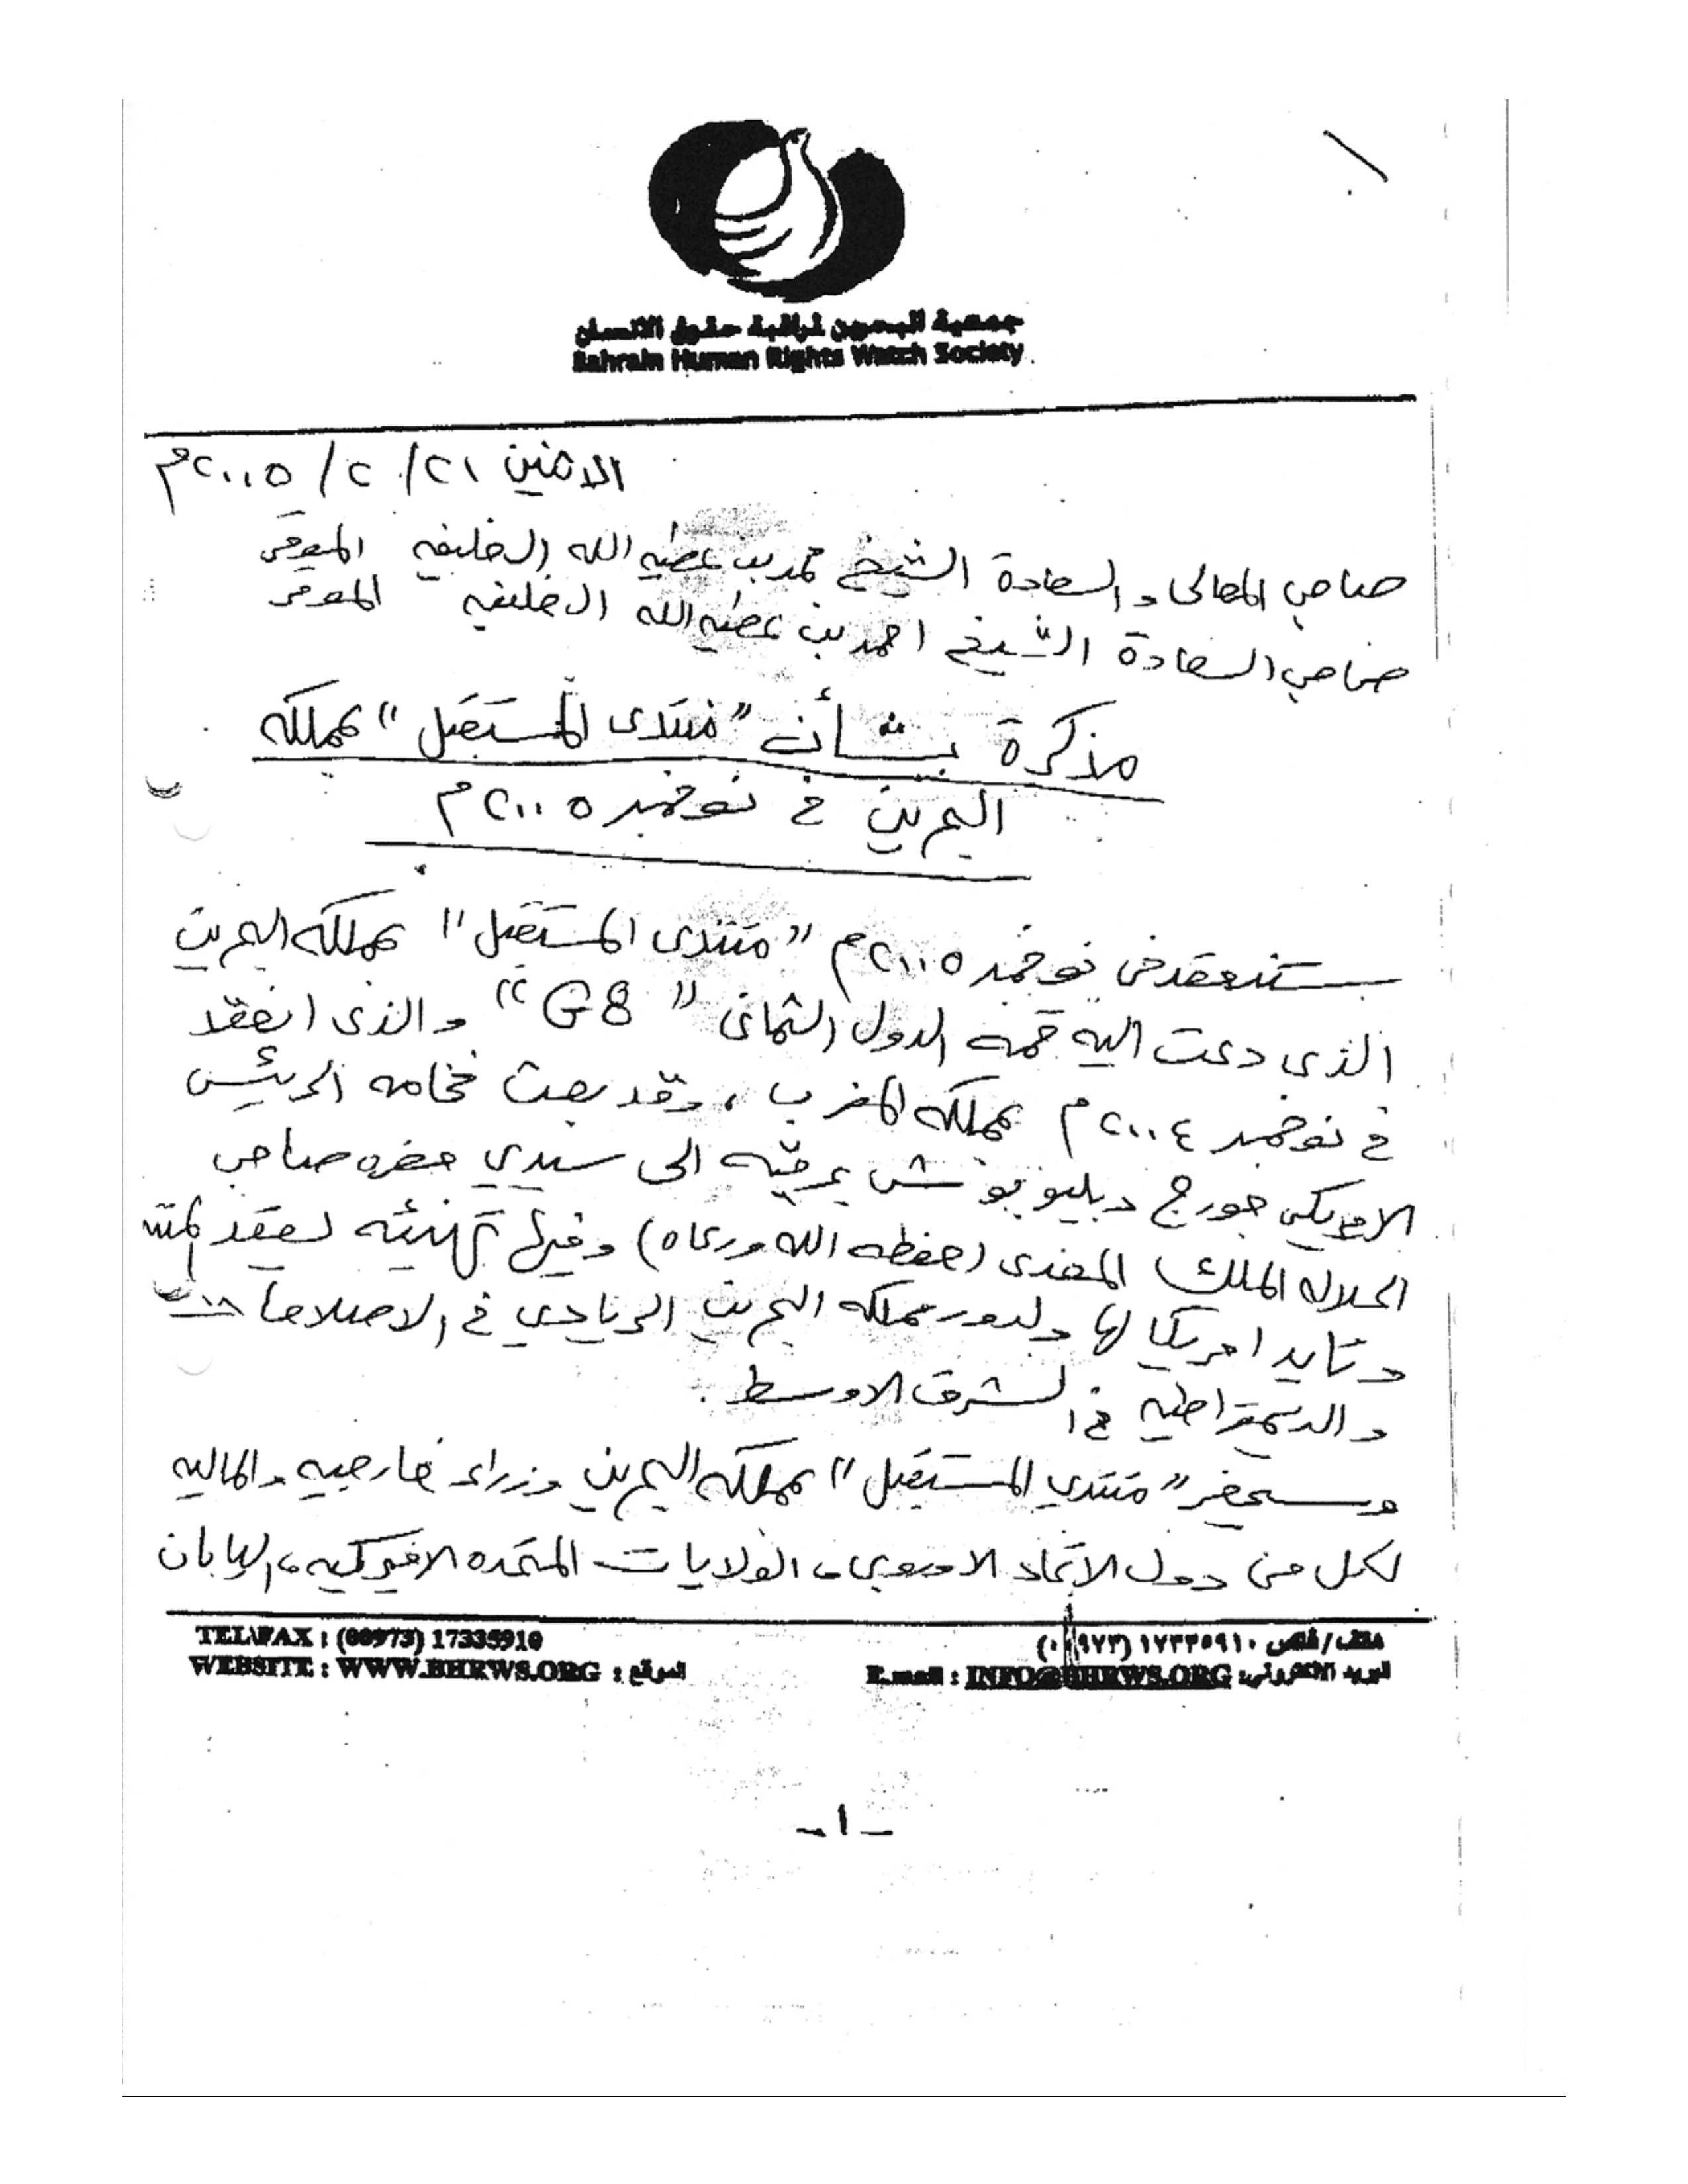 جمعية البحرين لمراقبة حقوق الانسان
Bahrain Human Rights Watch Society
الاثنين ٢١/ ٢/ ٢٠٠٥م
صاحب المعالي والسعادة الشيخ محمد بن عطيه الله الخليفه الموقر
صاحب السعادة الشيخ احمد بن عطيه الله الخليفه الموقر
مذكرة بشأن "منتدى المستقبل" بمملكه
البحرين في نوفمبر ٢٠٠٥م
ستنعقد في نوفمبر ٢٠٠٥م "منتدى المستقبل" بمملكه البحرين
الذى دعت اليه قمه الدول الثمانى "G8" والذى انعقد
في نوفمبر ٢٠٠٤م بمملكه المغرب، وقد بعث فخامه الرئيس
الامريكى جورج دبليو بوش برقيه الى سيدي حضره صاحب
الجلاله الملك المفدى (حفظه الله ورعاه) وفيها تهنئه لعقد
وتأيد امريكا لها ولدور مملكه البحرين الريادي في الاصلاحات
والديمقراطيه في الشرق الاوسط.
وسيحضر "منتدي المستقبل" بمملكه البحرين وزراء خارجيه والماليه
لكل من دول الاتحاد الاوروبي، الولايات المتحده الاميركيه، اليابان
TEL\FAX : (00973) 17335910 هاتف/فاكس ١٧٣٣٥٩١٠ (٠٠٩٧٣)
WEBSITE : WWW.BHRWS.ORG : الموقع E.mail : INFO@BHRWS.ORG :البريد الالكتروني
-١-